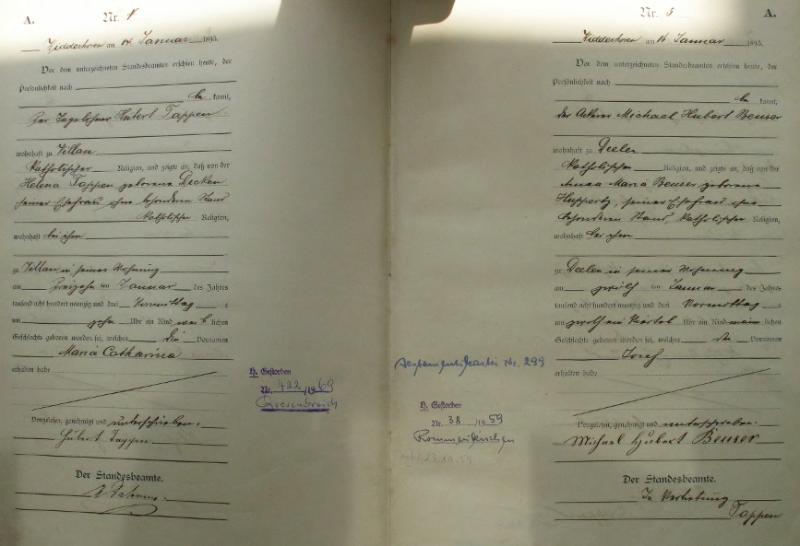 A.
Nr. 4
am 14. Januar 1893.
Vor dem unterzeichneten Standesbeamten erschien heute, der
Persönlichkeit nach
be kannt,
Der Tagelöhner Hubert Tappen
wohnhaft zu Villau
katholischer Religion, und zeigte an, daß von der
Helena Tappen geborene Decken
seiner Ehefrau ohne besondern Stand
katholischer Religion,
wohnhaft bei ihm
zu Villau in seiner Wohnung
am Januar des Jahres
tausend acht hundert neunzig und drei Vormittag s
um zehn Uhr ein Kind weib lichen
Geschlechts geboren worden sei, welches die Vornamen
Maria Catharina
erhalten habe
Vorgelesen, genehmigt und unterschrieben.
Hubert Tappen
Der Standesbeamte.
H. Gestorben
Nr. 422/1969
Grevenbroich
Nr. 5
A.
am 14. Januar 1893.
Vor dem unterzeichneten Standesbeamten erschien heute, der
Persönlichkeit nach
be kannt,
der Ackerer Michael Hubert Beuser
wohnhaft zu Deelen
katholischer Religion, und zeigte an, daß von der
Anna Maria Beuser geborene
Huppertz, seiner Ehefrau ohne
besondern Stand, katholischer Religion,
wohnhaft bei ihm
zu Deelen in seiner Wohnung
am zwölf ten Januar des Jahres
tausend acht hundert neunzig und drei Vormittag s
um zwölf ein Viertel Uhr ein Kind männ lichen
Geschlechts geboren worden sei, welches den Vornamen
Josef
erhalten habe
Vorgelesen, genehmigt und unterschrieben.
Michael Hubert Beuser
Der Standesbeamte.
In Vertretung
Tappen
Nr. 299
H. Gestorben
Nr. 38/1959
Rommerskirchen